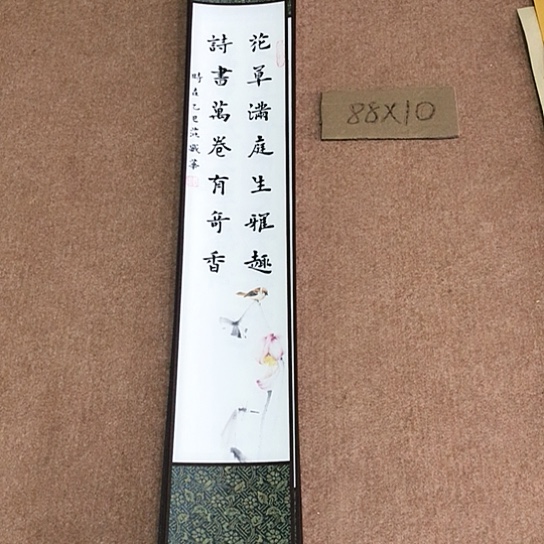 花草滿庭生雅趣
詩書萬卷有奇香
時在乙巳
88X10